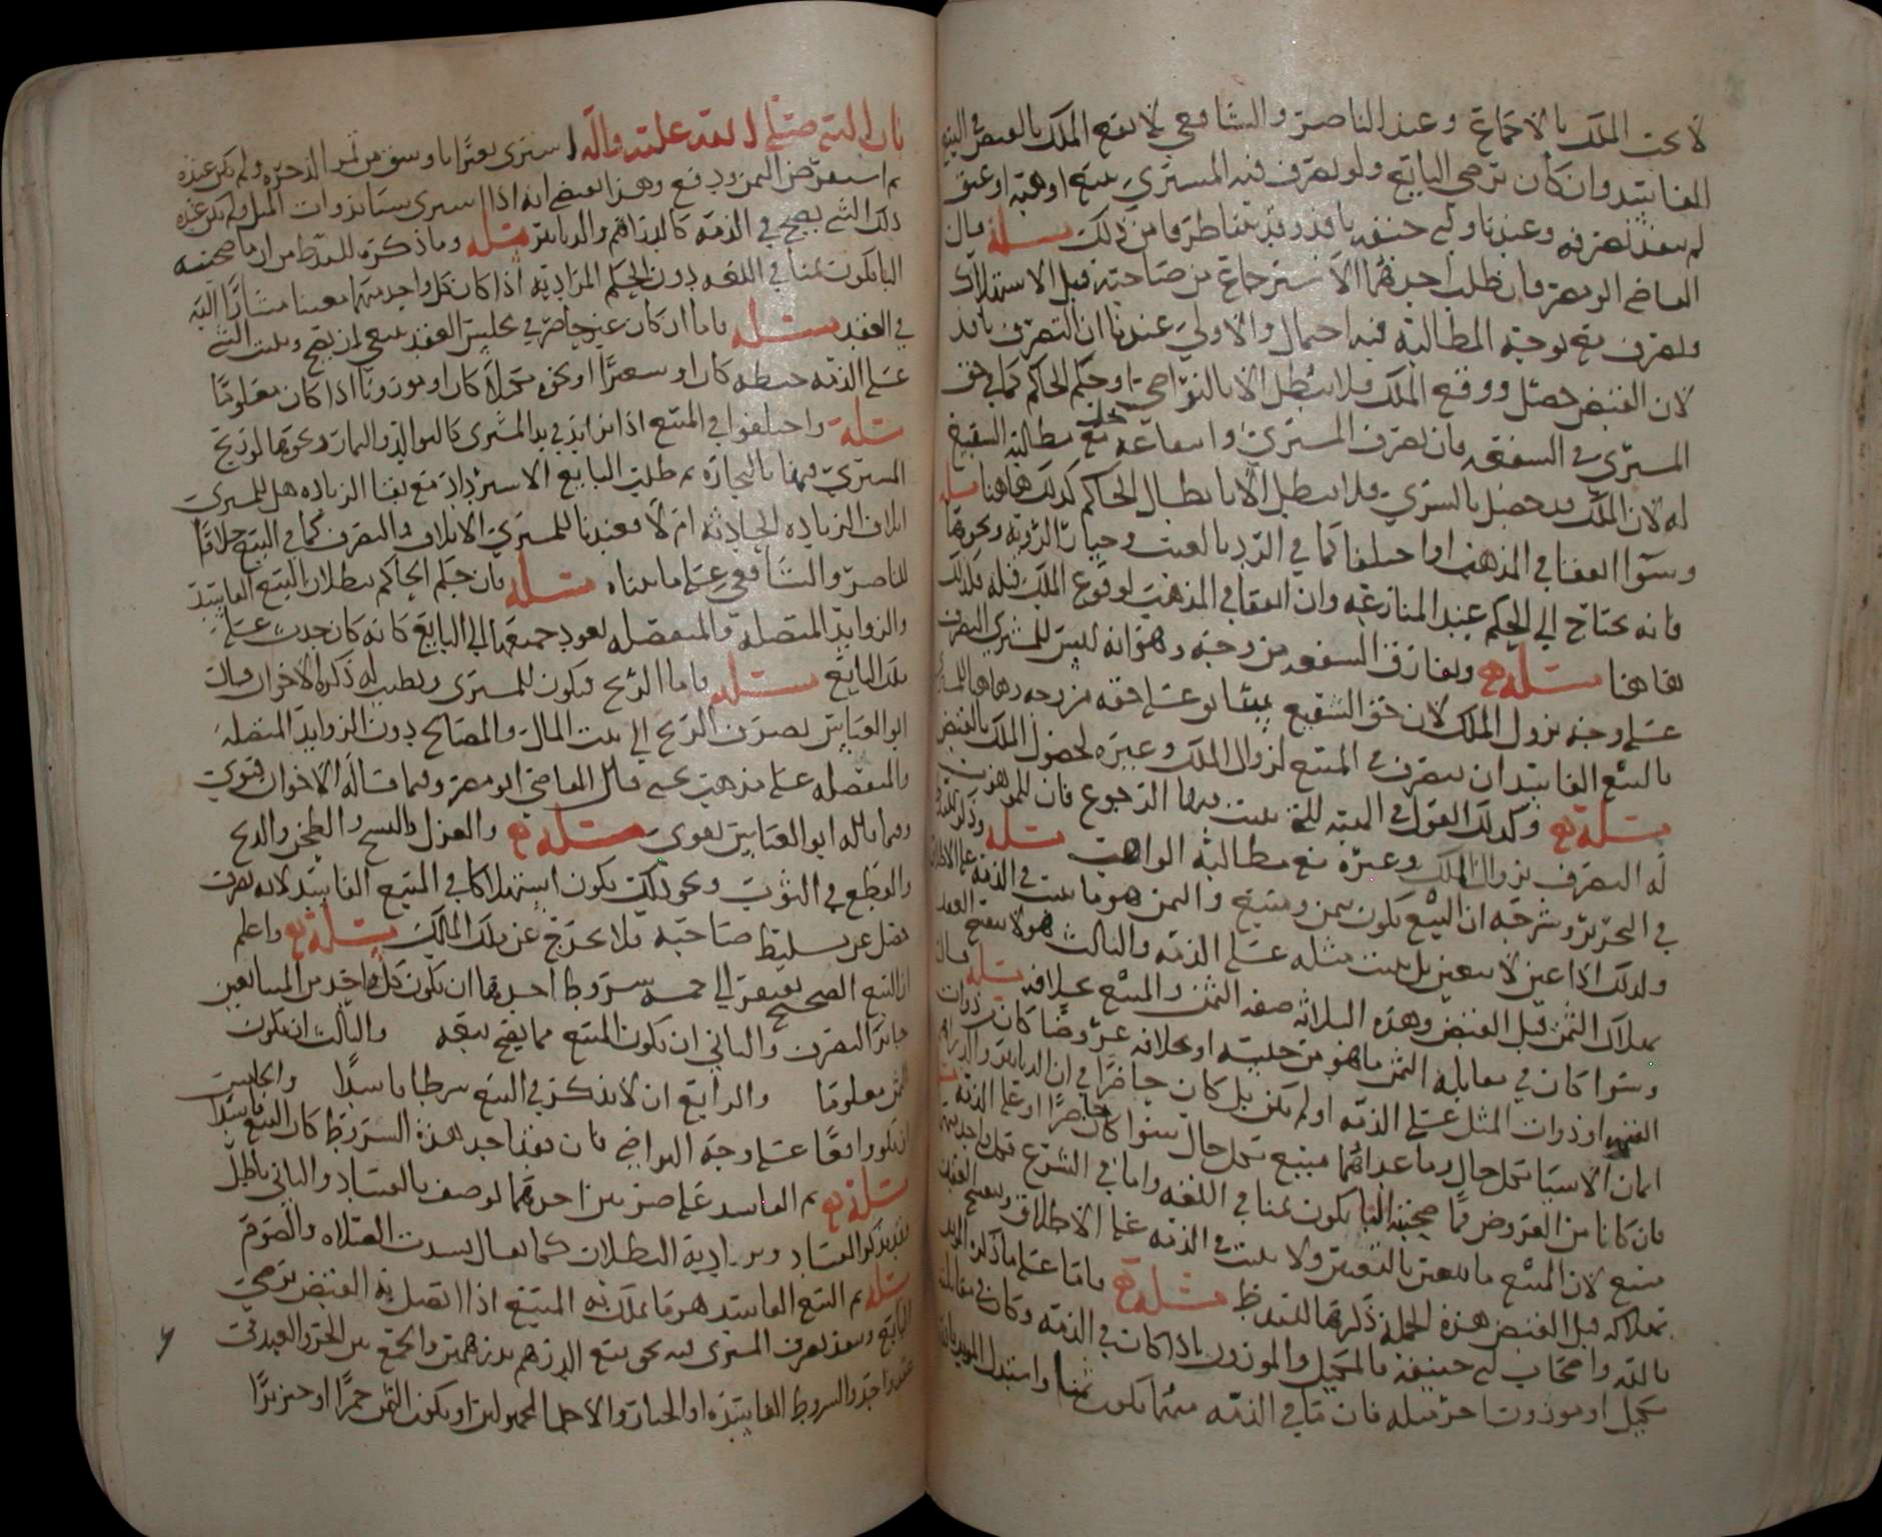 لا يجب الملك بالاجماع وعند الناصر والشافعي لا يقع الملك بالقبض في البيع
الفاسد وان كان برضى البايع ولو تصرف فيه المشتري ببيع او هبة او عتق
لم ينفذ تصرفه وعندنا وابي حنيفة نافذ وقد تناظر فامن ذلك مسئلة قال
القاضي ابو مضر فان طلب احدهما الاسترجاع من صاحبه قبل الاستهلاك
وتصرف مع توجه المطالبة فيه احتمال والاولى عندنا ان التصرف نافذ
لان القبض حصل ووقع الملك فلا يبطل الا بالتراضي او حكم الحاكم كما في حق
المشتري في الشفعة فان تصرف المشتري وانتفاعه يحل مع مطالبة الشفيع
له لان الملك قد حصل بالشري فلا يبطل الا بابطال الحاكم كذلك هاهنا مسئلة
وسوا اتفقا في المذهب او اختلفا كما في الرد بالعيب وخيار الروية ونحوها
فانه يحتاج الى الحكم عند المنازعة وان اتفقا في المذهب لوقوع الملك قبله فكذلك
هاهنا مسئلة ويفارق الشفعة من وجه وهو انه ليس للمشتري التصرف
على وجه يزول الملك لان حق الشفيع على حقه من وجه وهاهنا للمشتري
بالبيع الفاسد ان يتصرف في المبيع لزوال الملك وغيره لحصول الملك بالقبض
مسئلة وكذلك القول في الهبة التي يثبت فيها الرجوع فان للموهوب
له التصرف بزوال الملك وغيره مع مطالبة الواهب مسئلة وذكر
في التحرير وشرحه ان البيع يكون بثمن ومبيع والثمن هو ما يثبت في الذمة
ولذلك اذا عين لا يتعين بل يثبت مثله على الذمة والثالث هو لا ينفسخ العقد
بهلاك الثمن قبل القبض وهذه الثلاثة صفة الثمن والمبيع بخلافه مسئلة قال
وسوا كان في مقابلة الثمن ما هو من جنسه او بخلافه عروضا كان او ذوات
القيم او ذوات المثل على الذمة او لم يكن بل كان حاضرا في ان الدنانير والدراهم
اثمان الاشيا بكل حال وما عداهما مبيع بكل حال سوا كان حاضرا او على الذمة
فان كانا من العروض فما صحبته البا يكون ثمنا في اللغة واما في الشرع فكل واحد منهما
مبيع لان المبيع ما يتعين بالتعيين ولا يثبت في الذمة على الاطلاق وينفسخ العقد
بهلاكه قبل القبض هذه الجملة ذكرها مسئلة فاما على ما ذكره المويد
بالله واصحاب ابي حنيفة فالمكيل والموزون اذا كان في الذمة وكان في مقابلته
مكيل او موزون حاضر مثله فان ما في الذمة منهما يكون ثمنا واستدل المويد بالله
بان النبي صلى الله عليه واله اشترى بعيرا باوسق من تمر الذخيرة ولم يكن عنده
ثم استقرض الثمن ودفع وهذا يقتضي انه اذا اشترى شيئا بذوات المثل ولم يكن عنده
ذلك الشي يصح في الذمة كالدراهم والدنانير مسئلة وما ذكره من ان ما صحبته
البا يكون ثمنا في اللغة دون الحكم المراد به اذا كان كل واحد منهما معينا مشارا اليه
في العقد مسئلة فاما ان كان غير حاضر في مجلس العقد فينبغي ان يصح ويثبت الشي
على الذمة حنطة كان او شعيرا او نحوه مكيلا كان او موزونا اذا كان معلوما
مسئلة واختلفوا في المبيع اذا تزايد في يد المشتري كالفوائد والثمار ونحوها او ربح
المشتري فيها بالتجارة ثم طلب البايع الاسترداد مع بقا الزيادة هل للمشتري
اتلاف الزيادة الحادثة ام لا فعندنا للمشتري الاتلاف والتصرف كما في البيع خلافا
للناصر والشافعي على ما بيناه مسئلة فان حكم الحاكم ببطلان البيع الفاسد
والزوايد المتصلة والمنفصلة يعود جميعها الى البايع كانه كان حدث على
ملك البايع مسئلة فاما الربح فيكون للمشتري ويطيب له ذكره الاخوان وقال
ابو العباس يصرف الربح الى بيت المال والمصالح دون الزوايد المتصلة
والمنفصلة على مذهب يحيى قال القاضي ابو مضر وفيما قاله الاخوان قوي
وفيما قاله ابو العباس تقوى مسئلة والغزل والنسج والطحن والذبح
والقطع في الثوب ونحو ذلك يكون استهلاكا في المبيع الفاسد لانه تصرف
حصل عن تسليط صاحبه فلا يخرج عن ملك المالك مسئلة واعلم
ان البيع الصحيح يفتقر الى خمسة شروط احدها ان يكون كل واحد من المتبايعين
جايز التصرف والثاني ان يكون المبيع مما يصح بيعه والثالث ان يكون
الثمن معلوما والرابع ان لا يذكر في البيع شرطا فاسدا والخامس
ان يكون واقعا على وجه التراضي فان فقد احد هذه الشروط كان البيع فاسدا
مسئلة ثم الفاسد على ضربين احدهما يوصف بالفساد والثاني باطل
فقد يذكر الفساد ويراد به البطلان كما يقال فسدت الصلاة والصوم
مسئلة ثم البيع الفاسد هو ما يملك به المبيع اذا اتصل به القبض برضى
البايع وينفذ تصرف المشتري فيه نحو بيع الدرهم بدرهمين والجمع بين الحر والعبد في
عقد واحد والشروط الفاسدة او الخيار والاجال المجهولين او يكون الثمن خمرا او خنزيرا